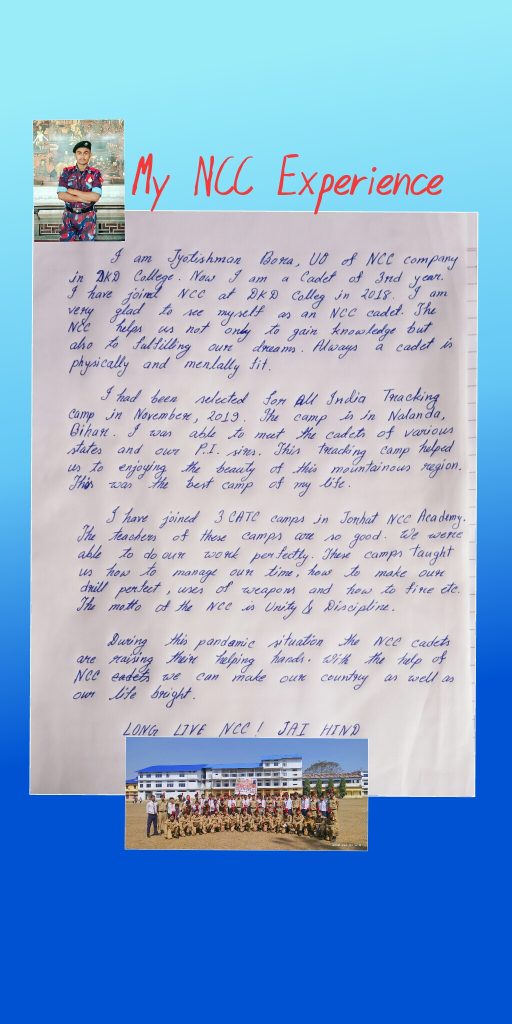 My NCC Experience
I am Jyotishman Bora, UO of NCC company
in DKD College. Now I am a Cadet of 3rd year.
I have joined NCC at DKD Colleg in 2018. I am
very glad to see myself as an NCC cadet. The
NCC helps us not only to gain knowledge but
also to fulfilling our dreams. Always a cadet is
physically and mentally fit.
I had been selected for All India Tracking
camp in November, 2019. The camp is in Nalanda,
Bihar. I was able to meet the cadets of various
states and our P.I. sirs. This tracking camp helped
us to enjoying the beauty of this mountainous region.
This was the best camp of my life.
I have joined 3 CATC camps in Jorhat NCC Academy.
The teachers of these camps are so good. We were
able to do our work perfectly. These camps taught
us how to manage our time, how to make our
drill perfect, uses of weapons and how to fire etc.
The motto of the NCC is Unity & Discipline.
During this pandemic situation the NCC cadets
are raising their helping hands. With the help of
NCC cadets we can make our country as well as
our life bright.
LONG LIVE NCC! JAI HIND